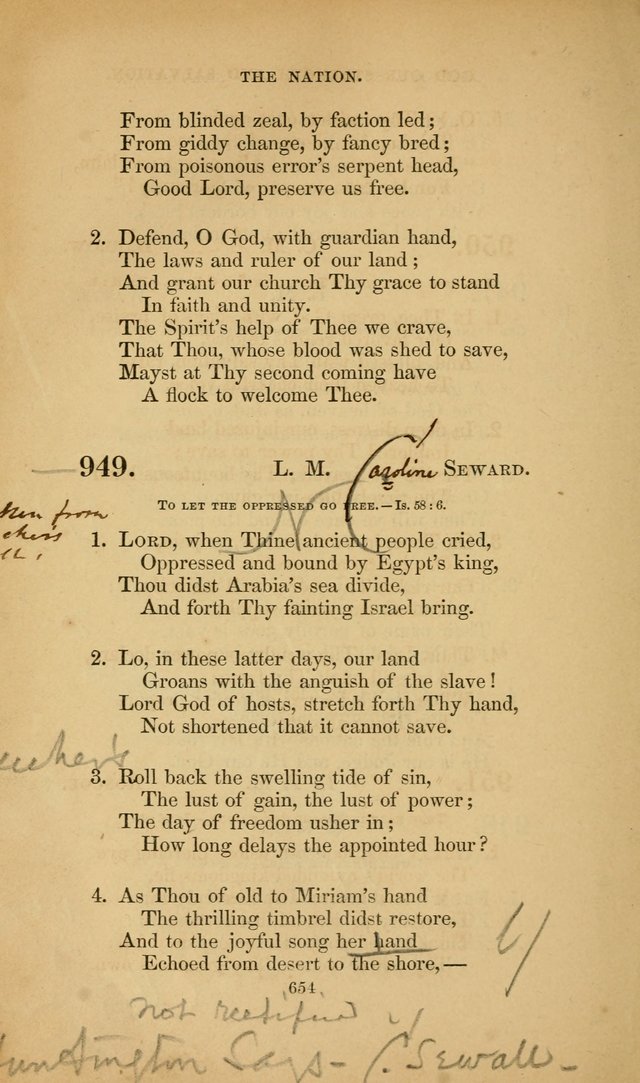 THE NATION.
From blinded zeal, by faction led;
From giddy change, by fancy bred;
From poisonous error's serpent head,
Good Lord, preserve us free.
2. Defend, O God, with guardian hand,
The laws and ruler of our land;
And grant our church Thy grace to stand
In faith and unity.
The Spirit's help of Thee we crave,
That Thou, whose blood was shed to save,
Mayst at Thy second coming have
A flock to welcome Thee.
949. L. M. Caroline SEWARD.
TO LET THE OPPRESSED GO FREE.—Is. 58:6.
from
1. LORD, when Thine ancient people cried,
Oppressed and bound by Egypt's king,
Thou didst Arabia's sea divide,
And forth Thy fainting Israel bring.
2. Lo, in these latter days, our land
Groans with the anguish of the slave!
Lord God of hosts, stretch forth Thy hand,
Not shortened that it cannot save.
3. Roll back the swelling tide of sin,
The lust of gain, the lust of power;
The day of freedom usher in;
How long delays the appointed hour?
4. As Thou of old to Miriam's hand
The thrilling timbrel didst restore,
And to the joyful song her hand
Echoed from desert to the shore,—
654
not rectified
Huntington Says - C. Sewall -